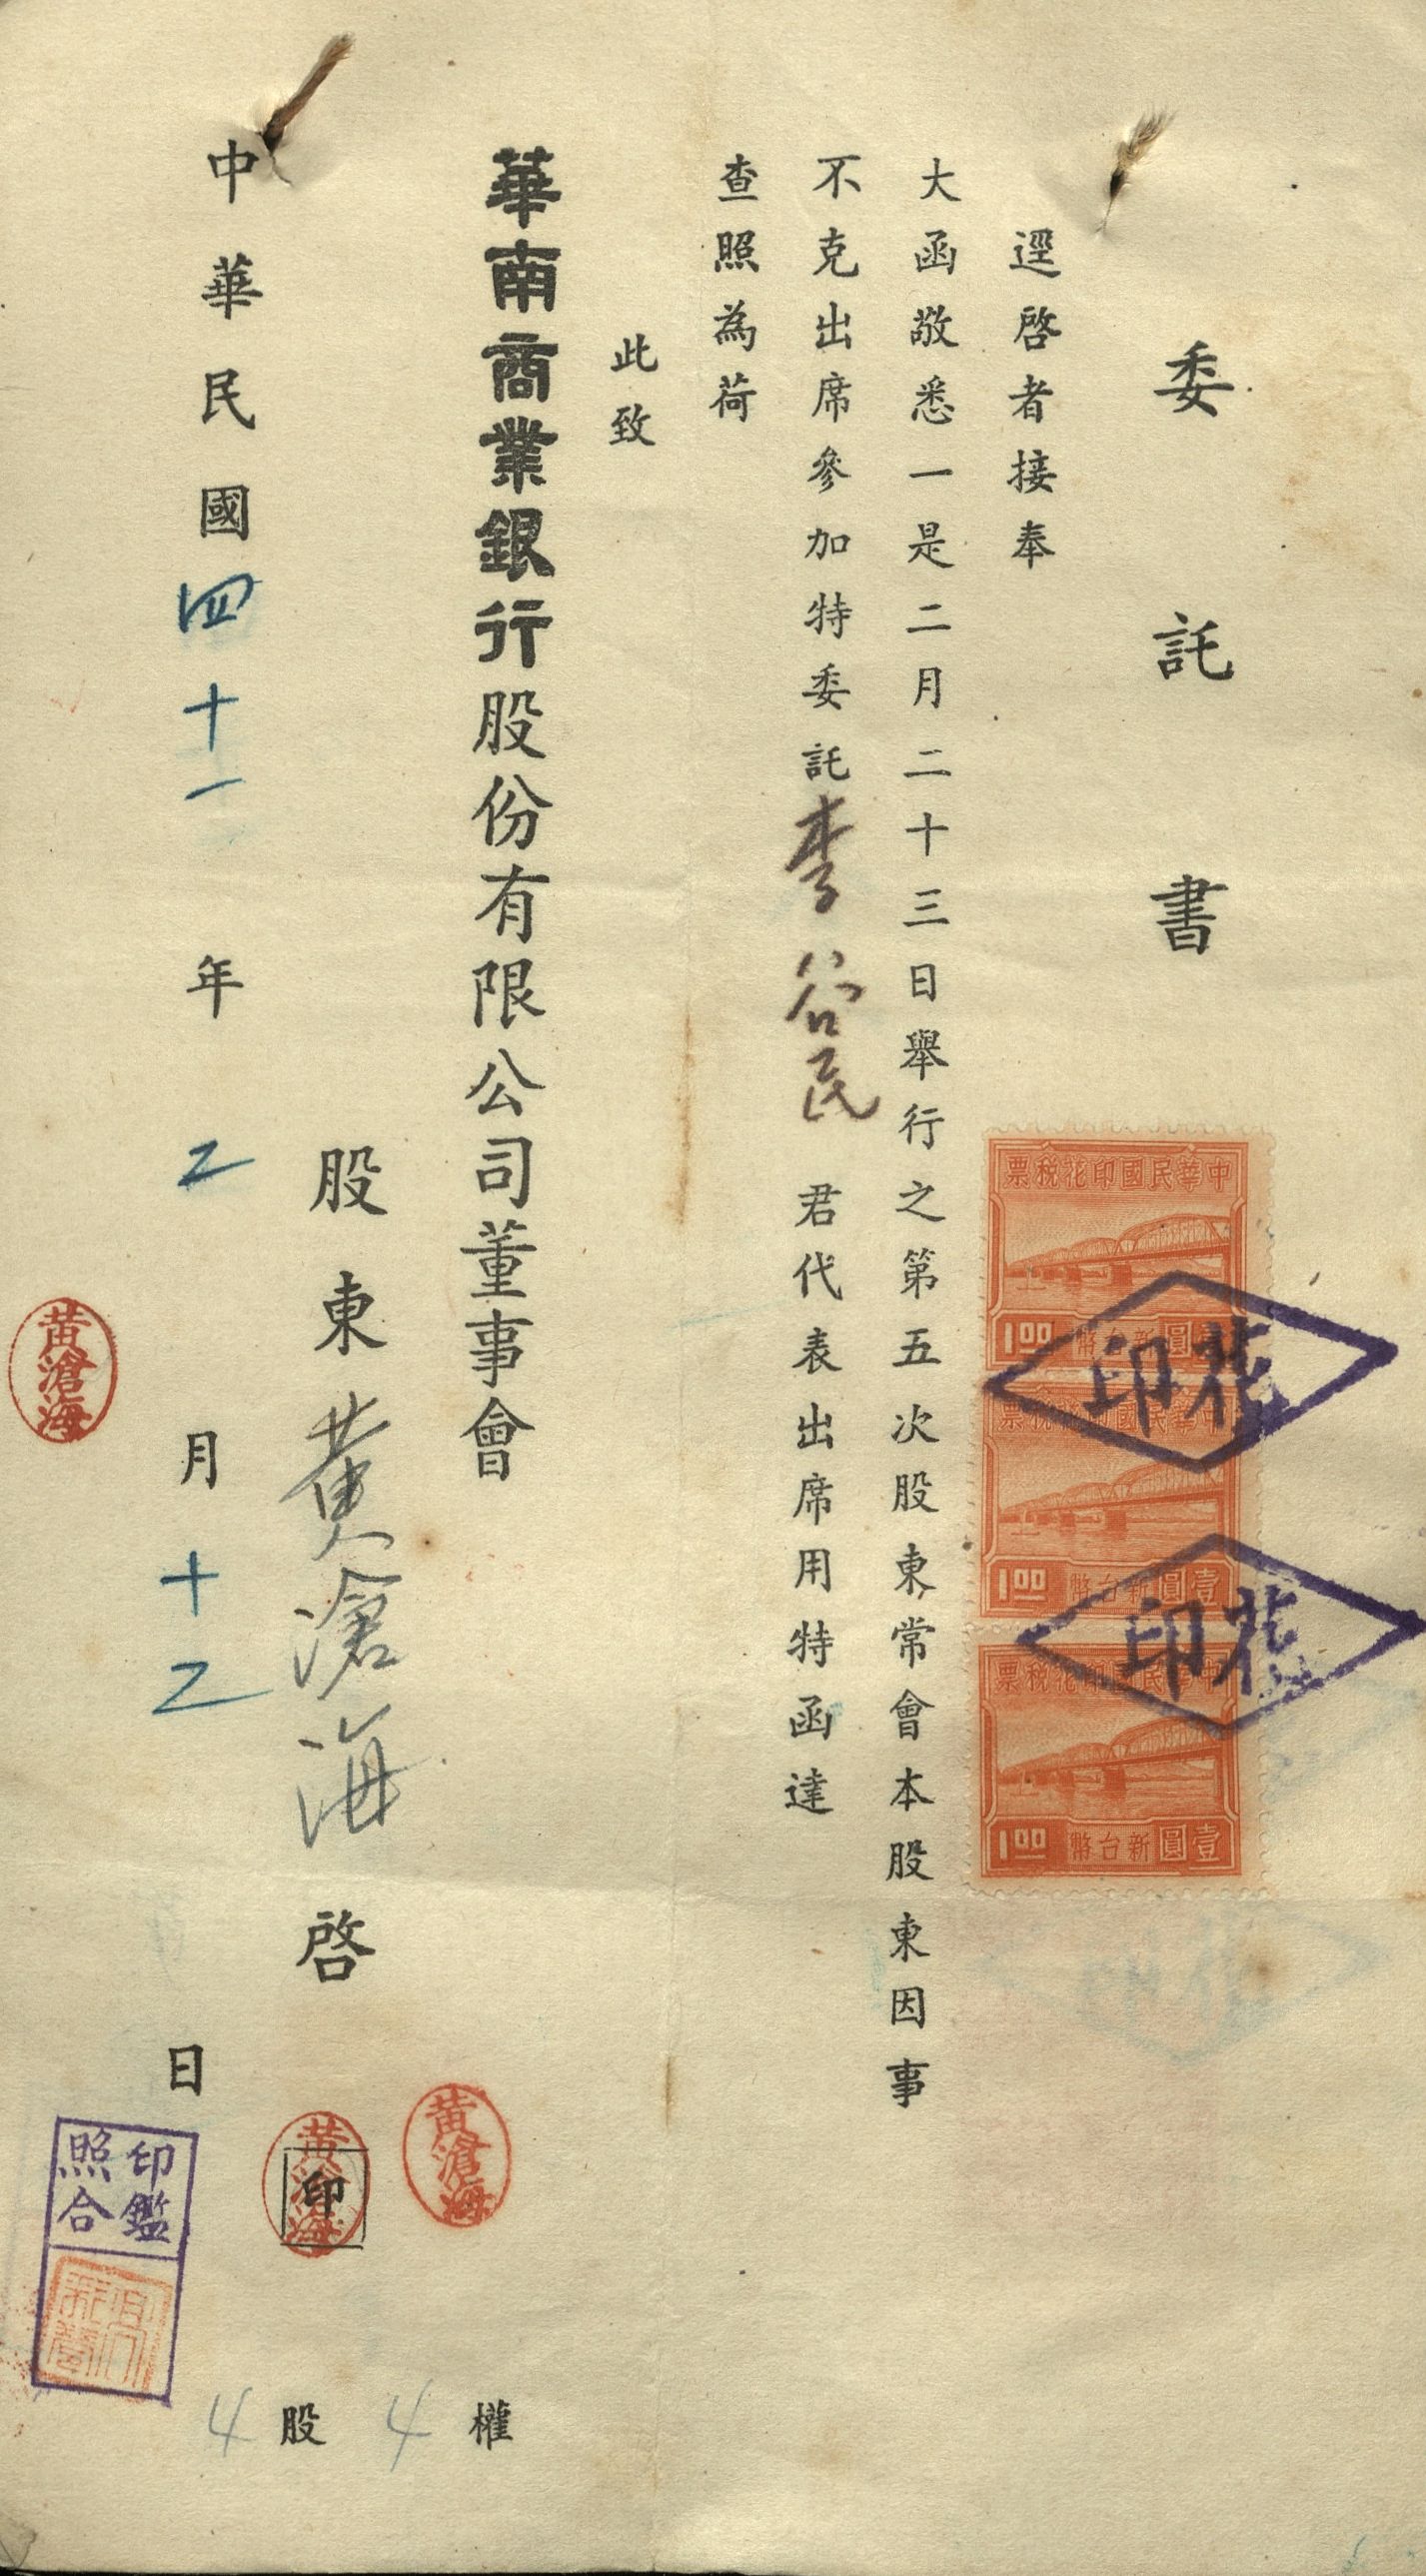 委託書
逕啓者接奉
大函敬悉一是二月二十三日舉行之第五次股東常會本股東因事
不克出席參加特委託李谷民君代表出席用特函達
查照為荷
此致
華南商業銀行股份有限公司董事會
股東黃滄海啓
印
中華民國四十一年二月十二日
4股4權
中華民國印花稅票
1.00 壹圓新台幣
中華民國印花稅票
1.00 壹圓新台幣
中華民國印花稅票
1.00 壹圓新台幣
印花
印花
黃滄海
黃滄海
黃滄海
印鑑
照合